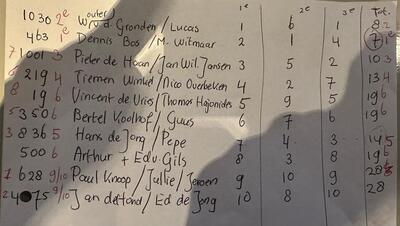 1e 2e 3e Tot.
1030 2e Wouter v.d Gronden / Lucas 1 6 1 8 2e
463 1e Dennis Bos / M. Witmaar 2 1 4 7 1e
7 1001 3 Pieter de Haan / Jan Wil Jansen 3 5 2 10 3
6 219 4 Tiemen Winkel / Nico Overbeeken 4 2 7 13 4
8 19 6 Vincent de Vries / Thomas Hajonides 5 9 5 19 6
5 350 6 Bertel Koolhof / Guus 6 7 6 19 6
3 836 5 Hans de Jong / Pepe 7 4 3 14 5
500 6 Arthur + Edu. Gils 8 3 8 19 6
1 628 9/10 Paul Knoop / Jullie / Jeroen 9 10 9 28
2 4 75 9/10 Jan de Hond / Ed de Jong 10 8 10 28